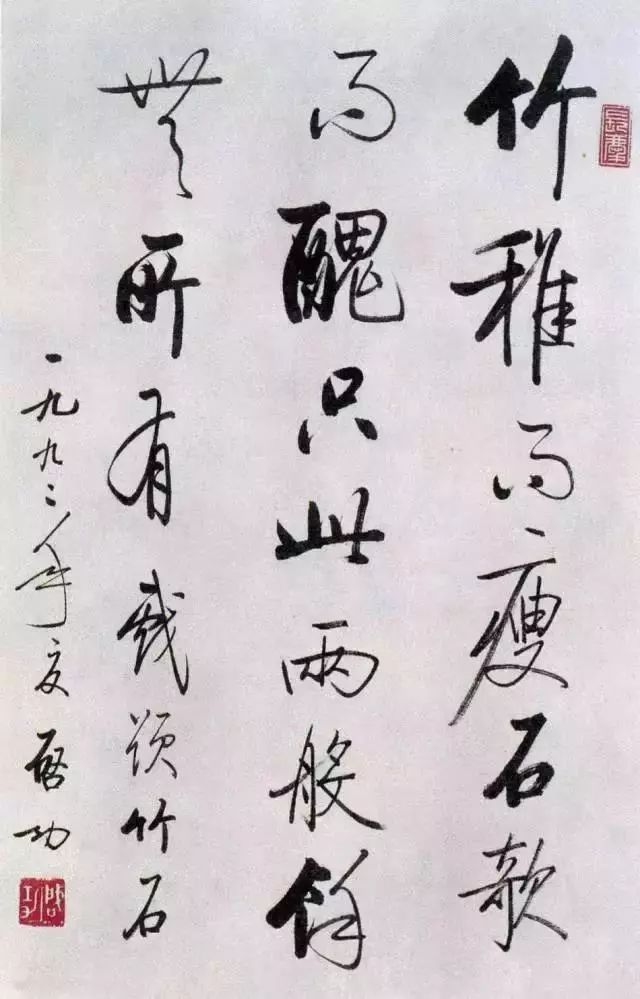 竹稚而瘦石欹
而醜只此兩般餘
無所有戲題竹石
一九九二年夏 啓功
啓功